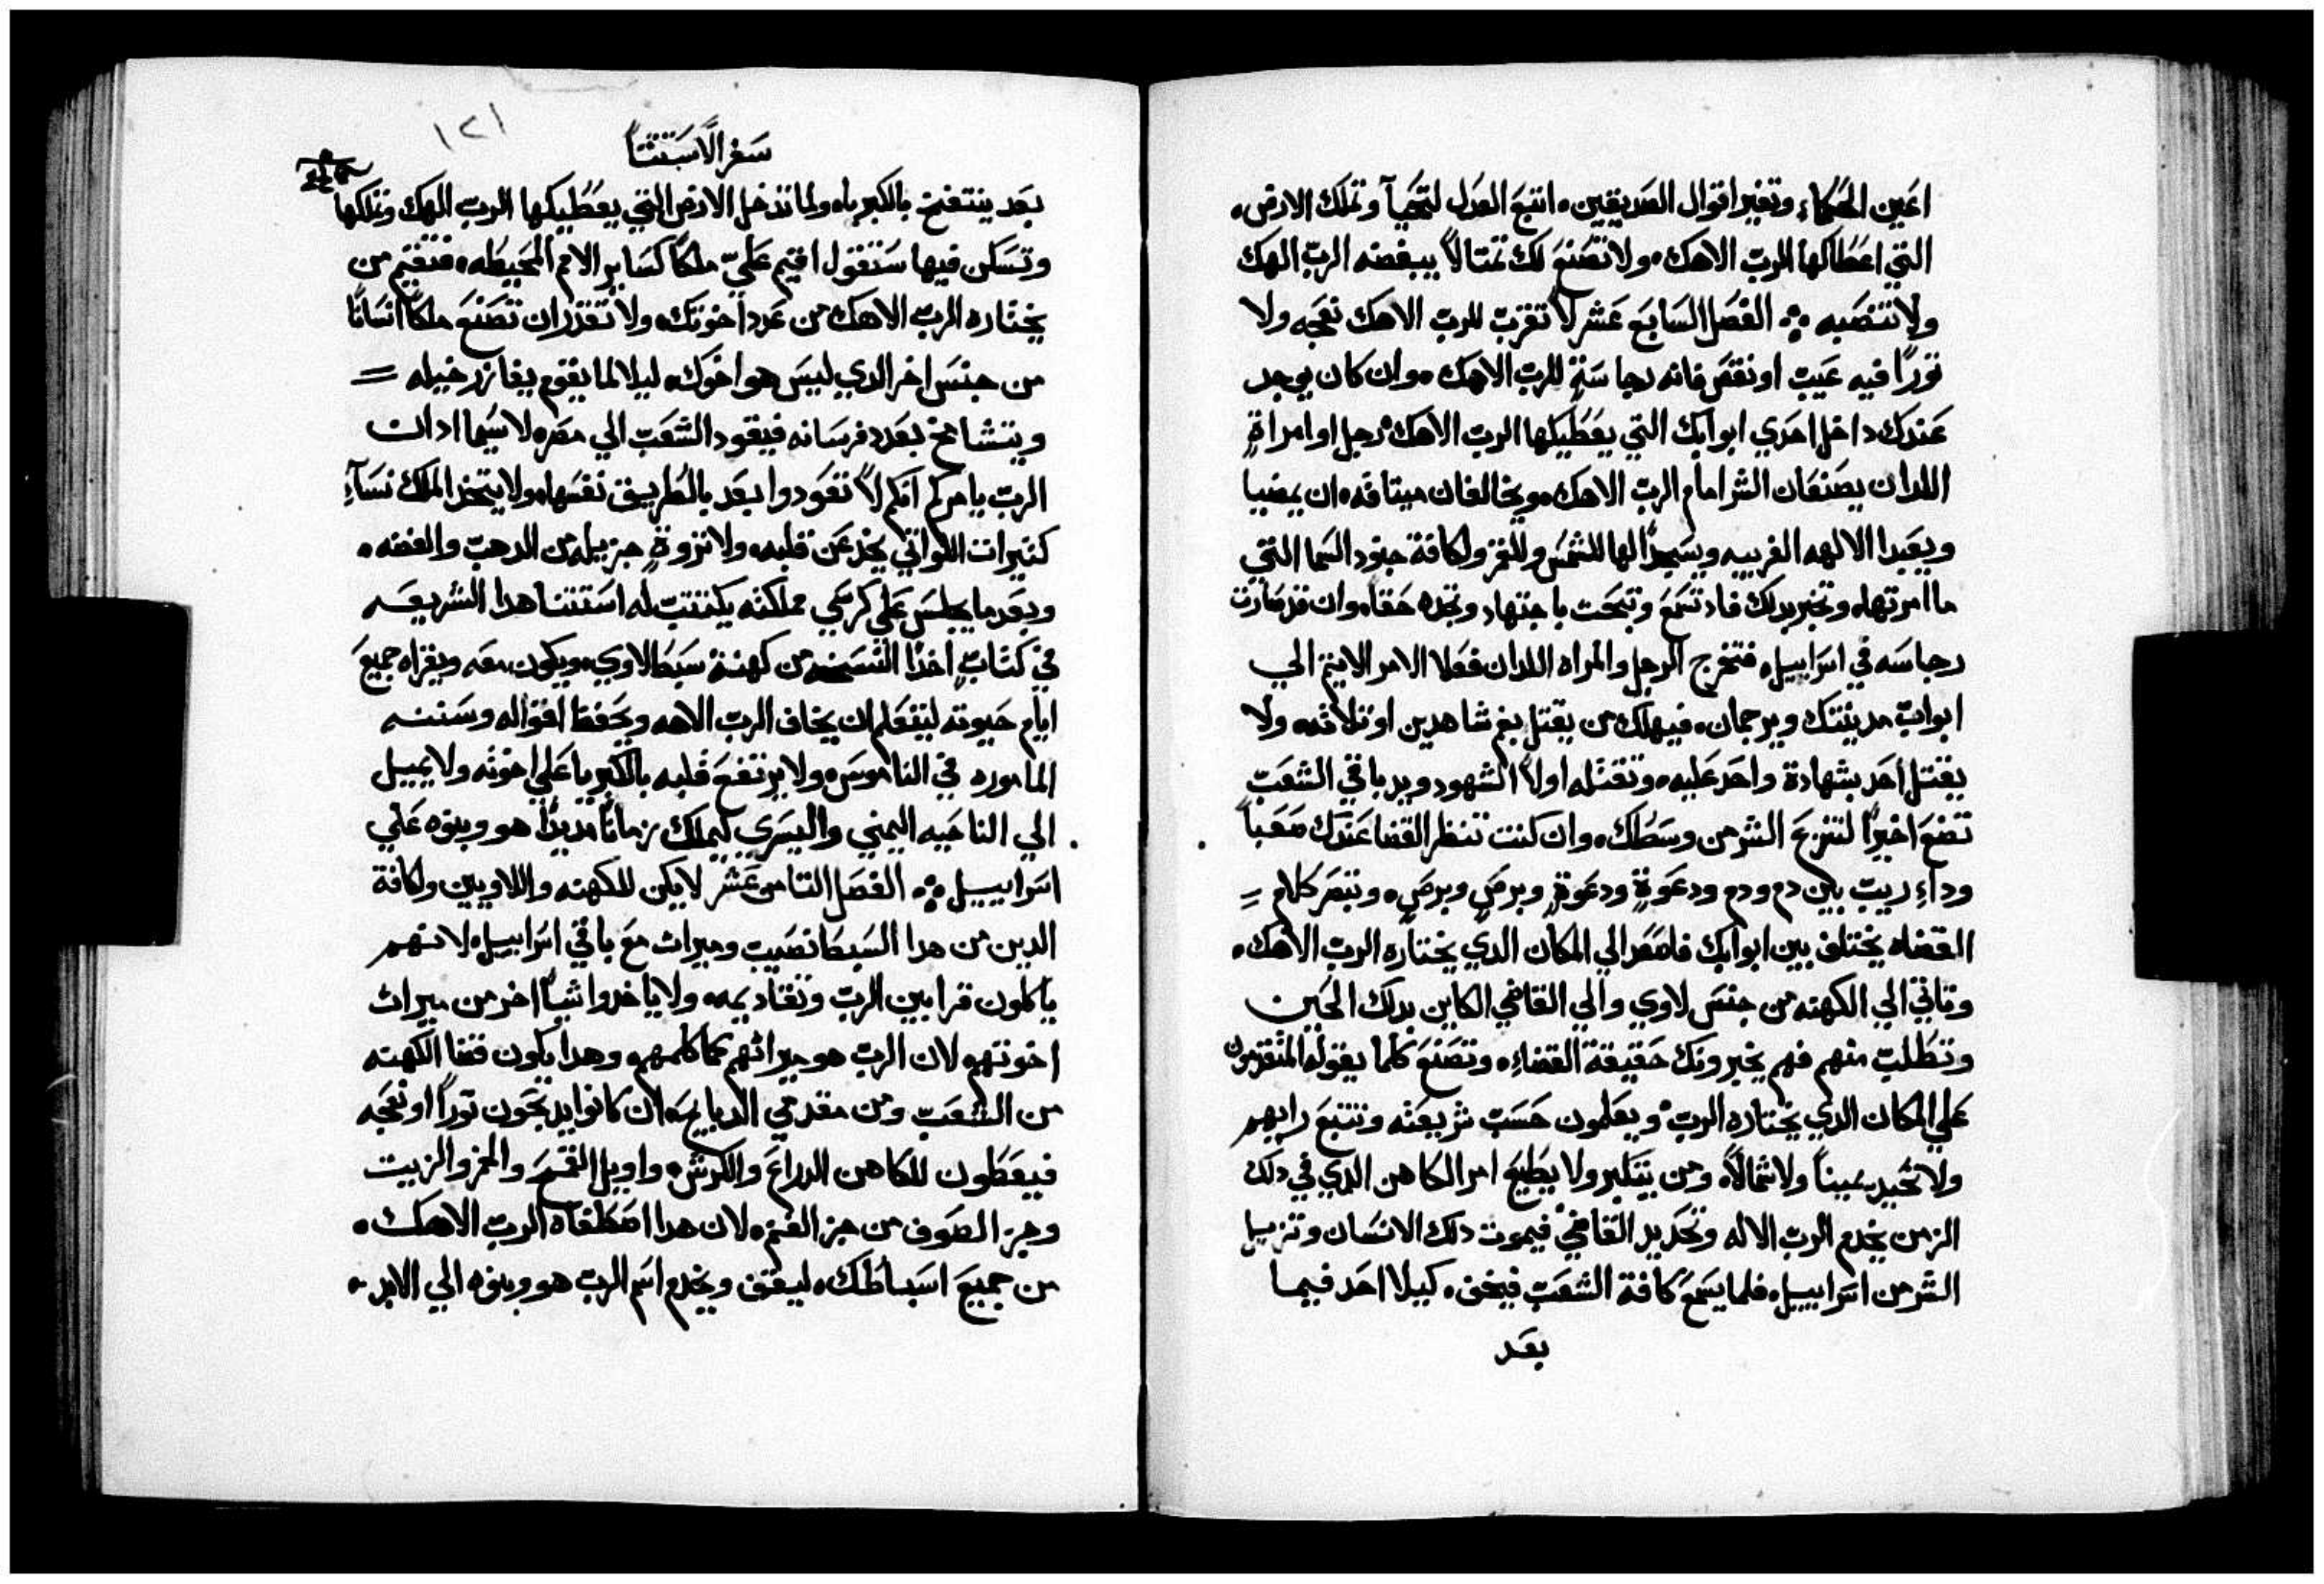 اعين الحكماء وتغير اقوال الصديقين، اتبع العدل لتحيآ وتملك الارض،
التي اعطاكها الرب الاهك، ولا تصنع لك تمتالاً يبغضه الرب الهك
ولا تنصبه ؞ الفصل السابع عشر لا تقرب للرب الاهك نعجه ولا
توراً فيه عيب او نقص فانه رجاسة للرب الاهك، وان كان يوجد
عندك داخل احدي ابوابك التي يعطيكها الرب الاهك رجل او امراة
اللدان يصنعان الشر امام الرب الاهك، ويخالفان ميتاقه، ان يمضيا
ويعبدا الالهه الغريبه ويسجدا لها للشمس وللقمر ولكافة جنود السما التي
ما امرتها، وتخبر بدلك فاد تسمع وتبحت باجتهاد وتجده حقاً، وان قد صارت
رجاسه في اسراييل، فتخرج الرجل والمراه اللدان فعلا الامر الاتيم الي
ابواب مدينتك ويرجمان، فيهلك من يقتل بفم شاهدين او تلاته، ولا
يقتل احد بشهادة واحد عليه، وتقتله اولاً الشهود ويد باقي الشعب
تضع اخيراً لتنزع الشر من وسطك، وان كنت تنظر القضا عندك صعباً
وداء ريب بين دم ودم ودعوة ودعوة وبرص وبرص، وتبصر كلام =
القضاه يختلف بين ابوابك فاصعد الي المكان الدي يختاره الرب الاهك،
وتاتي الي الكهنه من جنس لاوي والي القاضي الكاين بدلك الحين
وتطلب منهم فهم يخبرونك حقيقة القضاء، وتصنع كلما يقوله المتقدمون
علي المكان الدي يختاره الرب ويعلمون حسب شريعته وتتبع رايهم
ولا تحيد يميناً ولا شمالاً، ومن يتكبر ولا يطيع امر الكاهن الدي في دلك
الزمن يخدم الرب الاله وتحديد القاضي فيموت دلك الانسان وتزيل
الشر من اسراييل، فلما يسمع كافة الشعب فيخف، كيلا احد فيما
بعد
١٢١
سفر الاستتنا
بعد ينتفخ بالكبرياء ولما تدخل الارض التي يعطيكها الرب الهك وتملكها
وتسكن فيها ستقول اقيم عليّ ملكاً كساير الامم المحيطه، فتقيم من
يختاره الرب الاهك من عدد اخوتك، ولا تقدر ان تصنع ملكاً انساناً
من جنس اخر الدي ليس هو اخوك، ليلا لما يقوم يغازر خيله =
ويتشامخ بعدد فرسانه فيقود الشعب الي مصر، لا سيما ادان
الرب يامركم انكم لا تعودوا بعد بالطريق نفسها، ولا يتخد الملك نسآء
كتيرات اللواتي يخدعن قلبه، ولا تزوة جزيله من الدهب والفضه،
وبعد ما يجلس علي كرسي مملكته يكتتب له استتنا هدا الشريعه
في كتاب اخداً النسخه من كهنة سبط لاوي، ويكون معه ويقراه جميع
ايام حيوته ليتعلم ان يخاف الرب الاهه ويحفظ اقواله وسننه
الماموره في الناموس، ولا يرتفع قلبه بالكبريا علي اخوته ولا يميل
الي الناحيه اليمني واليسري ليملك زماناً مديداً هو وبنوه علي
اسراييل ؞ الفصل التامن عشر لا يكن للكهنه واللاويين ولكافة
الدين من هدا السبط نصيب وميرات مع باقي اسراييل، لانهم
ياكلون قرابين الرب وتقاديمه، ولا ياخدوا شياً اخر من ميرات
اخوتهم لان الرب هو ميراتهم كما كلمهم، وهدا يكون قضا الكهنه
من الشعب ومن مقدمي الدبايح، ان كانوا يدبحون توراً او نعجه
فيعطون للكاهن الدراع والكرش، واوايل القمح والخمر والزيت
وجز الصوف من جز الغنم، لان هدا اصطفاه الرب الاهك،
من جميع اسباطك، ليقف ويخدم اسم الرب هو وبنوه الي الابد،